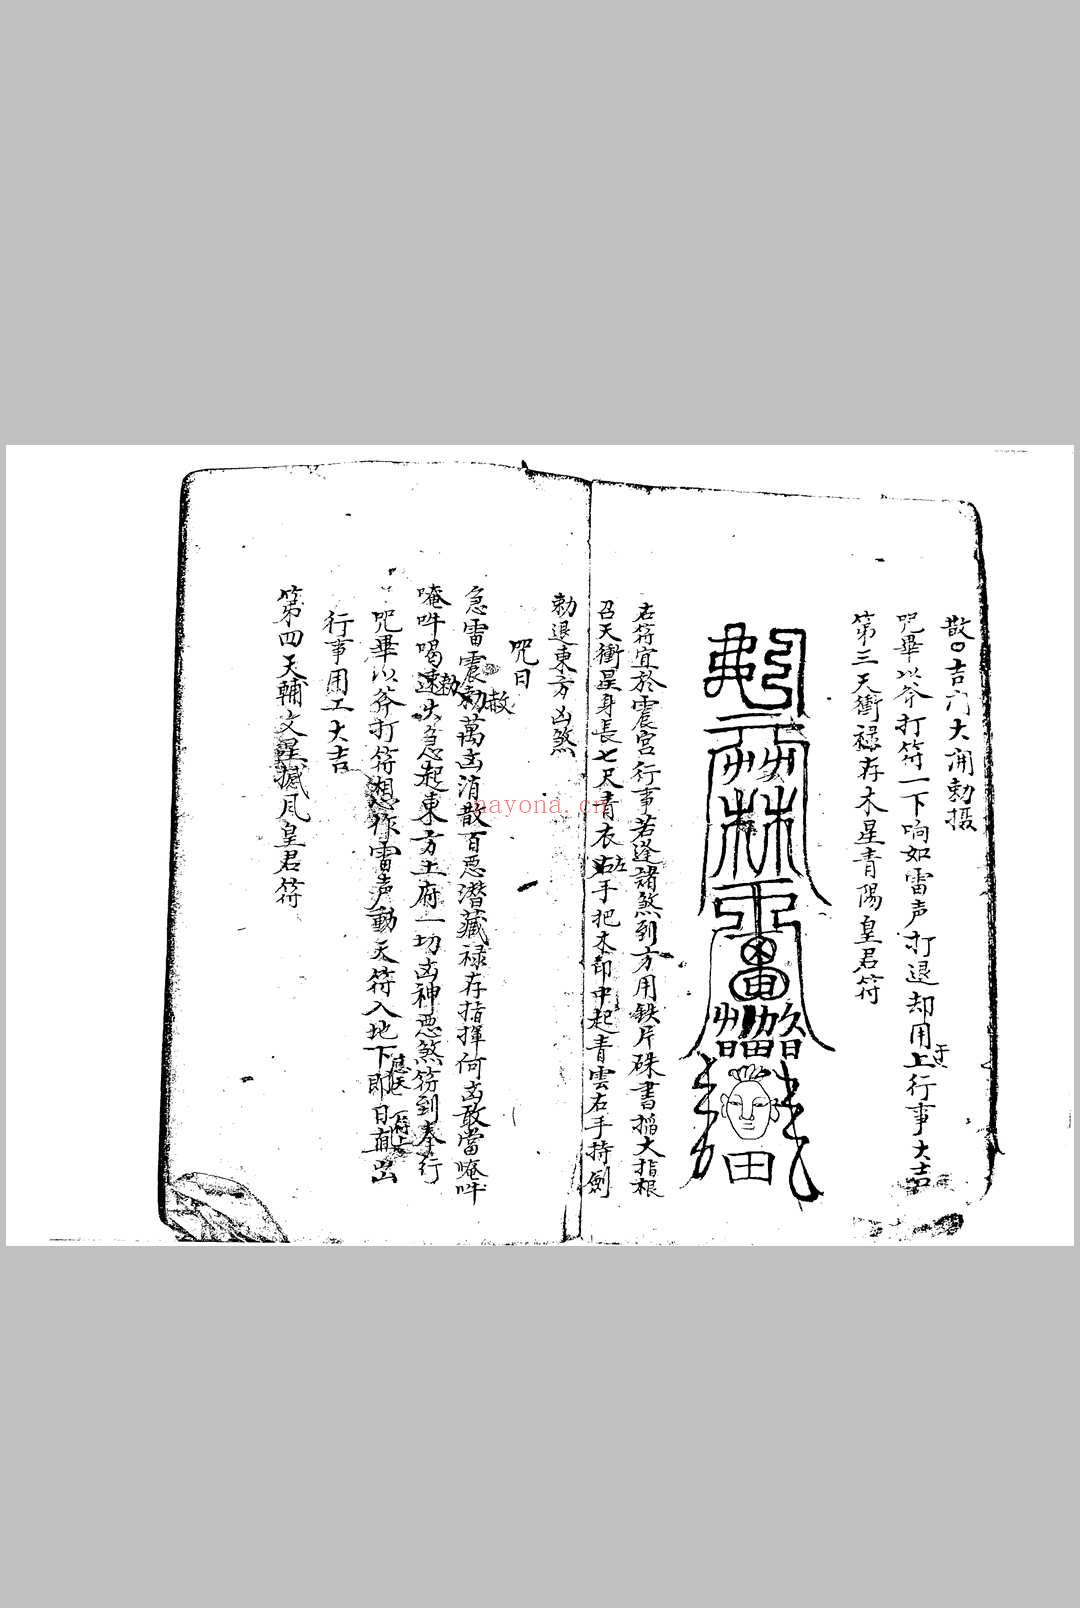 散〇吉门大開勅摄
咒畢以斧打符一下响如雷声打退却用上行事大吉
于
第三天衝禄存木星青陽皇君符
右符宜於震宫行事若逢諸煞到方用鉄片硃書掐大指根
召天衝星身長七尺青衣右手把木印中起青雲右手持劍
左
勅退東方凶煞
咒曰
急雷震勅萬凶消散百恶潜藏禄存指揮何凶敢當唵吽
赦
唵吽喝速急起東方土府一切凶神恶煞符到奉行
勅
咒畢以斧打符想作雷声動天符入地下即日出
行事用工大吉
第四天輔文星風皇君符
田
nayona.cn